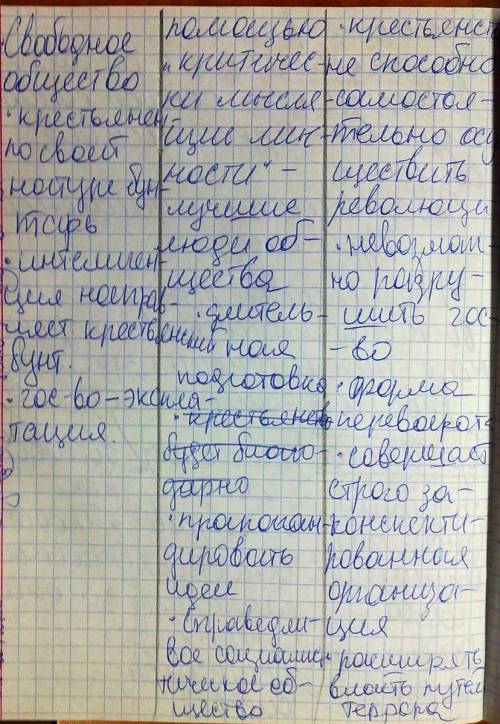 Свободное
общество
· крестьянен
по своей
натуре бун-
тарь
· интеллиген-
ция направ-
ляет крестьянский
бунт.
· гос-во-эксплуа-
тация.
помощью
"критичес-
ки мысля-
щие лич-
ности" –
лучшие
люди об-
щества
· длитель-
ная
подготовка
· крестьянство
будет благо-
дарно
· пропаган-
дировать
идеи
· справедли-
вое социалис-
тическое об-
щество
· крестьянст
не способно
самостоя-
тельно осу
ществить
революци
· невозмож-
но разру-
шить гос-
-во
· форма
переворота
· совершает
строго за-
конспекти-
рованная
организа-
ция
· расширять
власть путём
террора